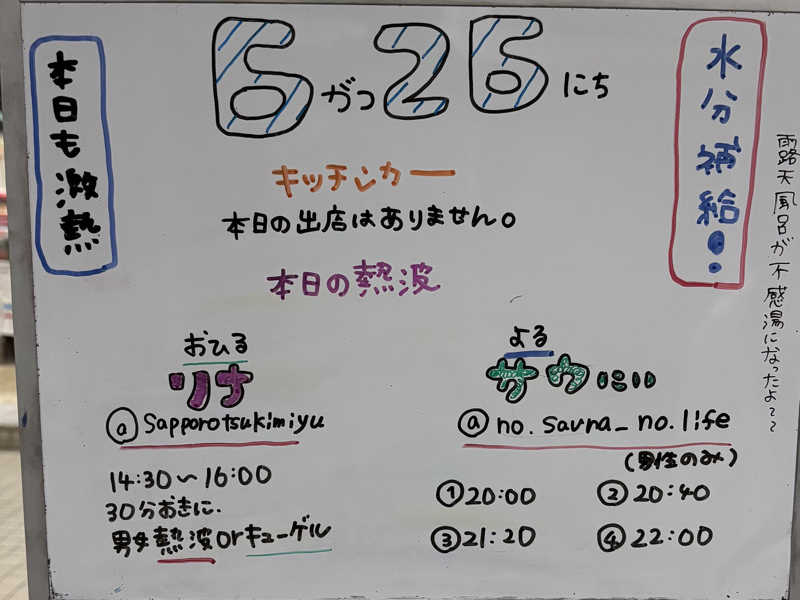 本日も激熱
6がつ26にち
水分補給!
露天風呂が不感湯になったよ~~
キッチンカー
本日の出店はありません。
本日の熱波
おひる
リナ
@sapporotsukimiyu
14:30~16:00
30分おきに.
男女熱波orキューゲル
よる
サウにい
@no.sauna_no.life
(男性のみ)
①20:00 ②20:40
③21:20 ④22:00